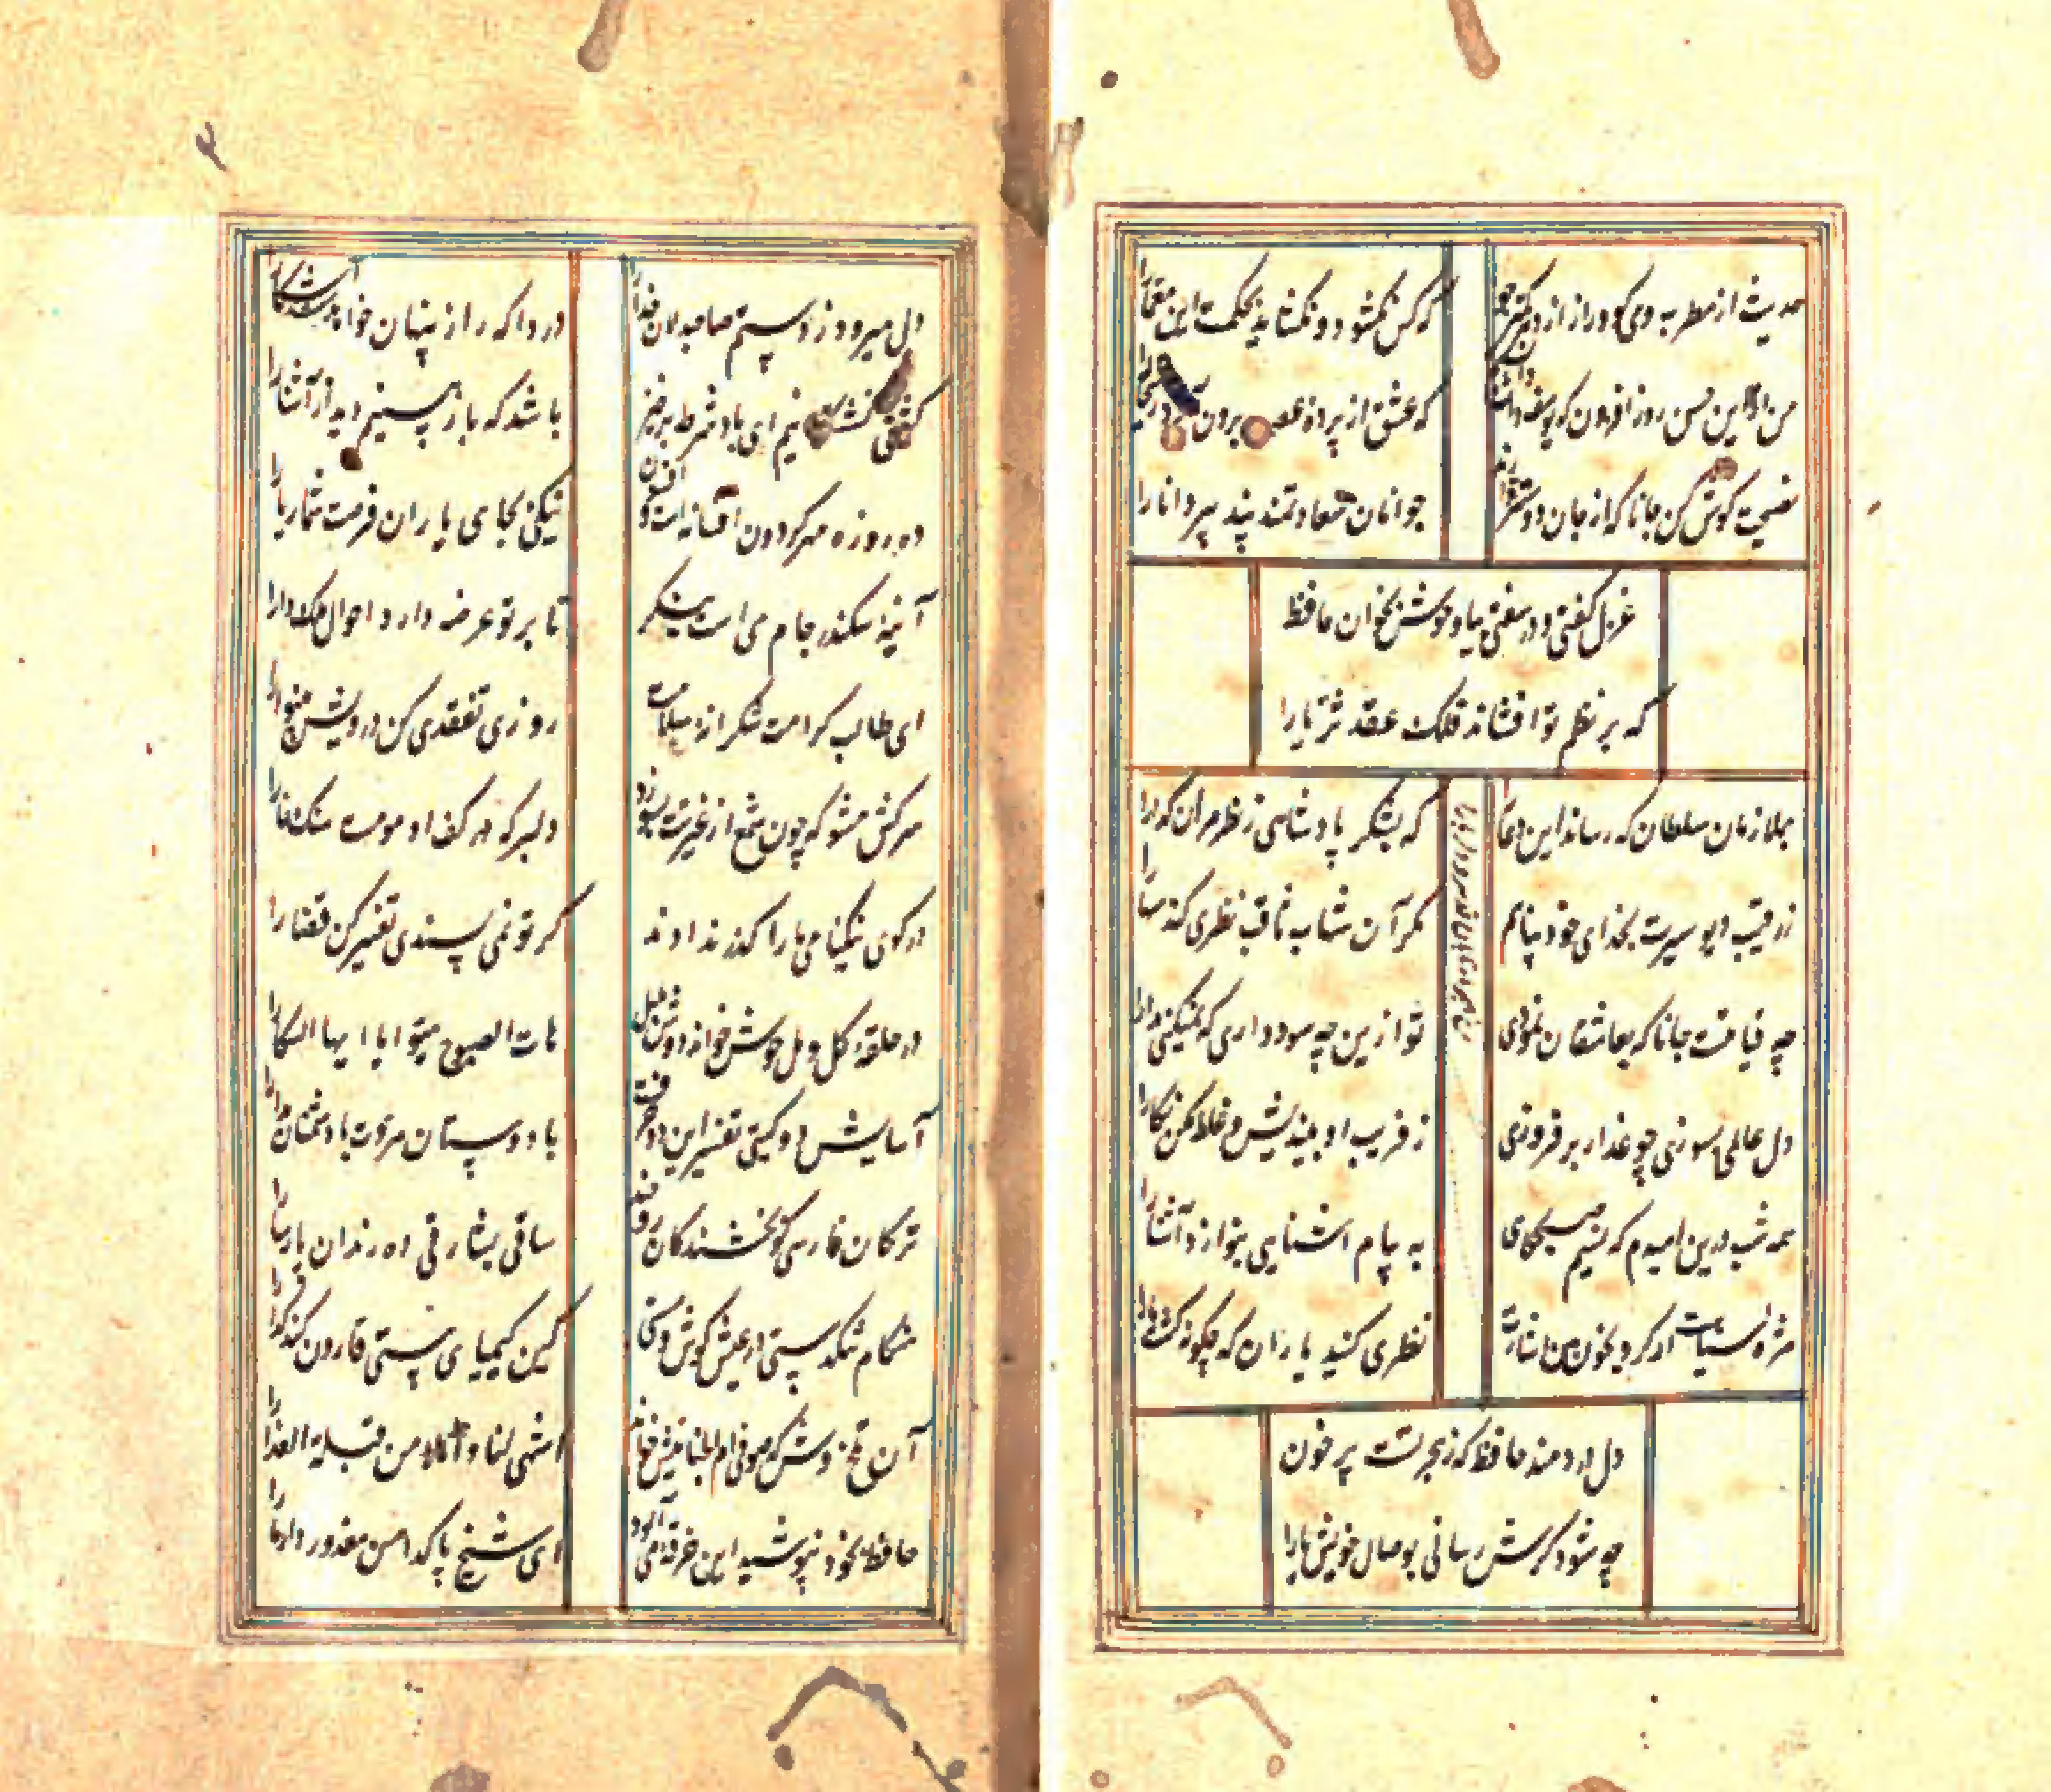 حدیث از مطرب و می گو و راز از دهر کمتر جو
که کس نکشود و نکشاید بحکمت این معما را
من از آن حسن روز افزون که یوسف داشت دانستم
که عشق از پرده عصمت برون آرد زلیخا را
نصیحت گوش کن جانا که از جان دوستر دارند
جوانان سعادتمند پند پیر دانا را
غزل گفتی و در سفتی بیا و خوش بخوان حافظ
که بر نظم تو افشاند فلک عقد ثریا را
بملازمان سلطان که رساند این دعا را
که بشکر پادشاهی ز نظر مران گدا را
ز رقیب دیو سیرت بخدای خود پناهم
مگر آن شهاب ثاقب نظری کند سها را
چه قیامتست جانا که بعاشقان نمودی
تو ازین چه سود داری که نمیکنی مدارا
دل عالمی بسوزی چو عذار بر فروزی
ز فریب او بیندیش و غلط مکن نگارا
همه شب درین امیدم که نسیم صبحگاهی
به پیام اشنایی بنوازد آشنا را
مژه سیاهت ار کرد بخون ما اشارت
نظری کنید یاران که چگونه کشت ما را
دل دردمند حافظ که ز هجر تست پر خون
چه شود گرش رسانی بوصال خویش یارا
دل میرود ز دستم صاحبدلان خدا را
دردا که راز پنهان خواهد شد آشکارا
کشتی نشستگانیم ای باد شرطه برخیز
باشد که باز بینیم دیدار آشنا را
ده روزه مهر گردون افسانه است و افسون
نیکی بجای یاران فرصت شمار یارا
آینه سکندر جام می است بنگر
تا بر تو عرضه دارد احوال ملک دارا
ای طالب کرامت شکرانه سلامت
روزی تفقدی کن درویش بینوا را
سرکش مشو که چون شمع از غیرتت بسوزد
دلبر که در کف او مومست سنک خارا
در کوی نیکنامی ما را گذر ندادند
گر تو نمی پسندی تغییر کن قضا را
در حلقه گل و مل خوش خواند دوش بلبل
هات الصبوح هبوا یا ایها السکارا
آسایش دو گیتی تفسیر این دو حرفت
با دوستان مروت با دشمنان مدارا
ترکان فارسی گو بخشندگان عمرند
ساقی بشارتی ده رندان پارسا را
هنگام تنگدستی در عیش کوش و مستی
کین کیمیای هستی قارون کند گدا را
آن تلخ وش که صوفی ام الخبائثش خواند
اشهی لنا و احلی من قبلة العذارا
حافظ بخود نپوشید این خرقه می آلود
ای شیخ پاکدامن معذور دار ما را